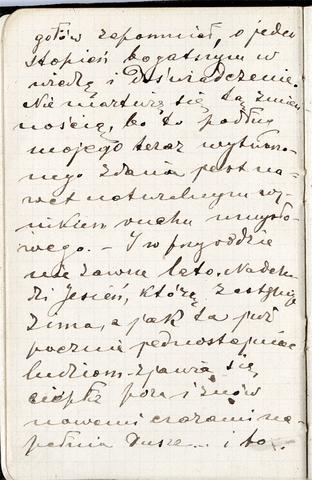 gotów zapomnieć, o jeden
stopień bogatszym w
wiedzę i doświadczenie.
Nie martwię się tą zmien
nością, bo to podług
mojego teraz wytworzo-
nego zdania jest na-
wet naturalnym wy-
nikiem ruchu umysło-
wego. – I w przyrodzie
nie zawsze lato. Nadcho-
dzi Jesień, którą zastępuje
zima, a jak ta już
pocznie
ludziom – zjawia się
ciepła pora i znów
nowemi czarami na-
pełnia dusze... i to.